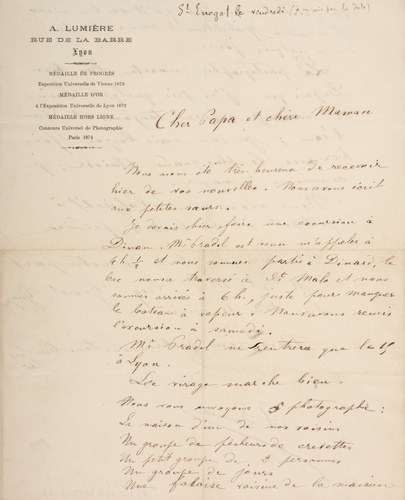 St Enogat le vendredi
A. LUMIÈRE
RUE DE LA BARRE
Lyon
MÉDAILLE DE PROGRÈS
Exposition Universelle de Vienne 1873
MÉDAILLE D'OR
à l'Exposition Universelle de Lyon 1872
MÉDAILLE HORS LIGNE
Concours Universel de Photographie
Paris 1874
Cher Papa et chère Maman
Nous avons été très heureux de recevoir
hier de vos nouvelles. Nous avons écrit
aux petites sœurs.
Je devais hier faire une excursion à
Dinan. Mr Pradel est venu m'appeler à
4h ½ et nous sommes partis à Dinard, le
bac nous a traversé à St Malo et nous
sommes arrivés à 6 h, juste pour manquer
le bateau à vapeur. Nous avons remis
l'excursion à samedi.
Mr Pradel ne rentrera que le 15
à Lyon.
Le virage marche bien.
Nous vous envoyons 5 photographie :
La maison d'un de nos voisins
Un groupe de pêcheurs de crevettes
Un petit groupe de 3 personnes
Un groupe de jours
Une falaise voisine de la maison